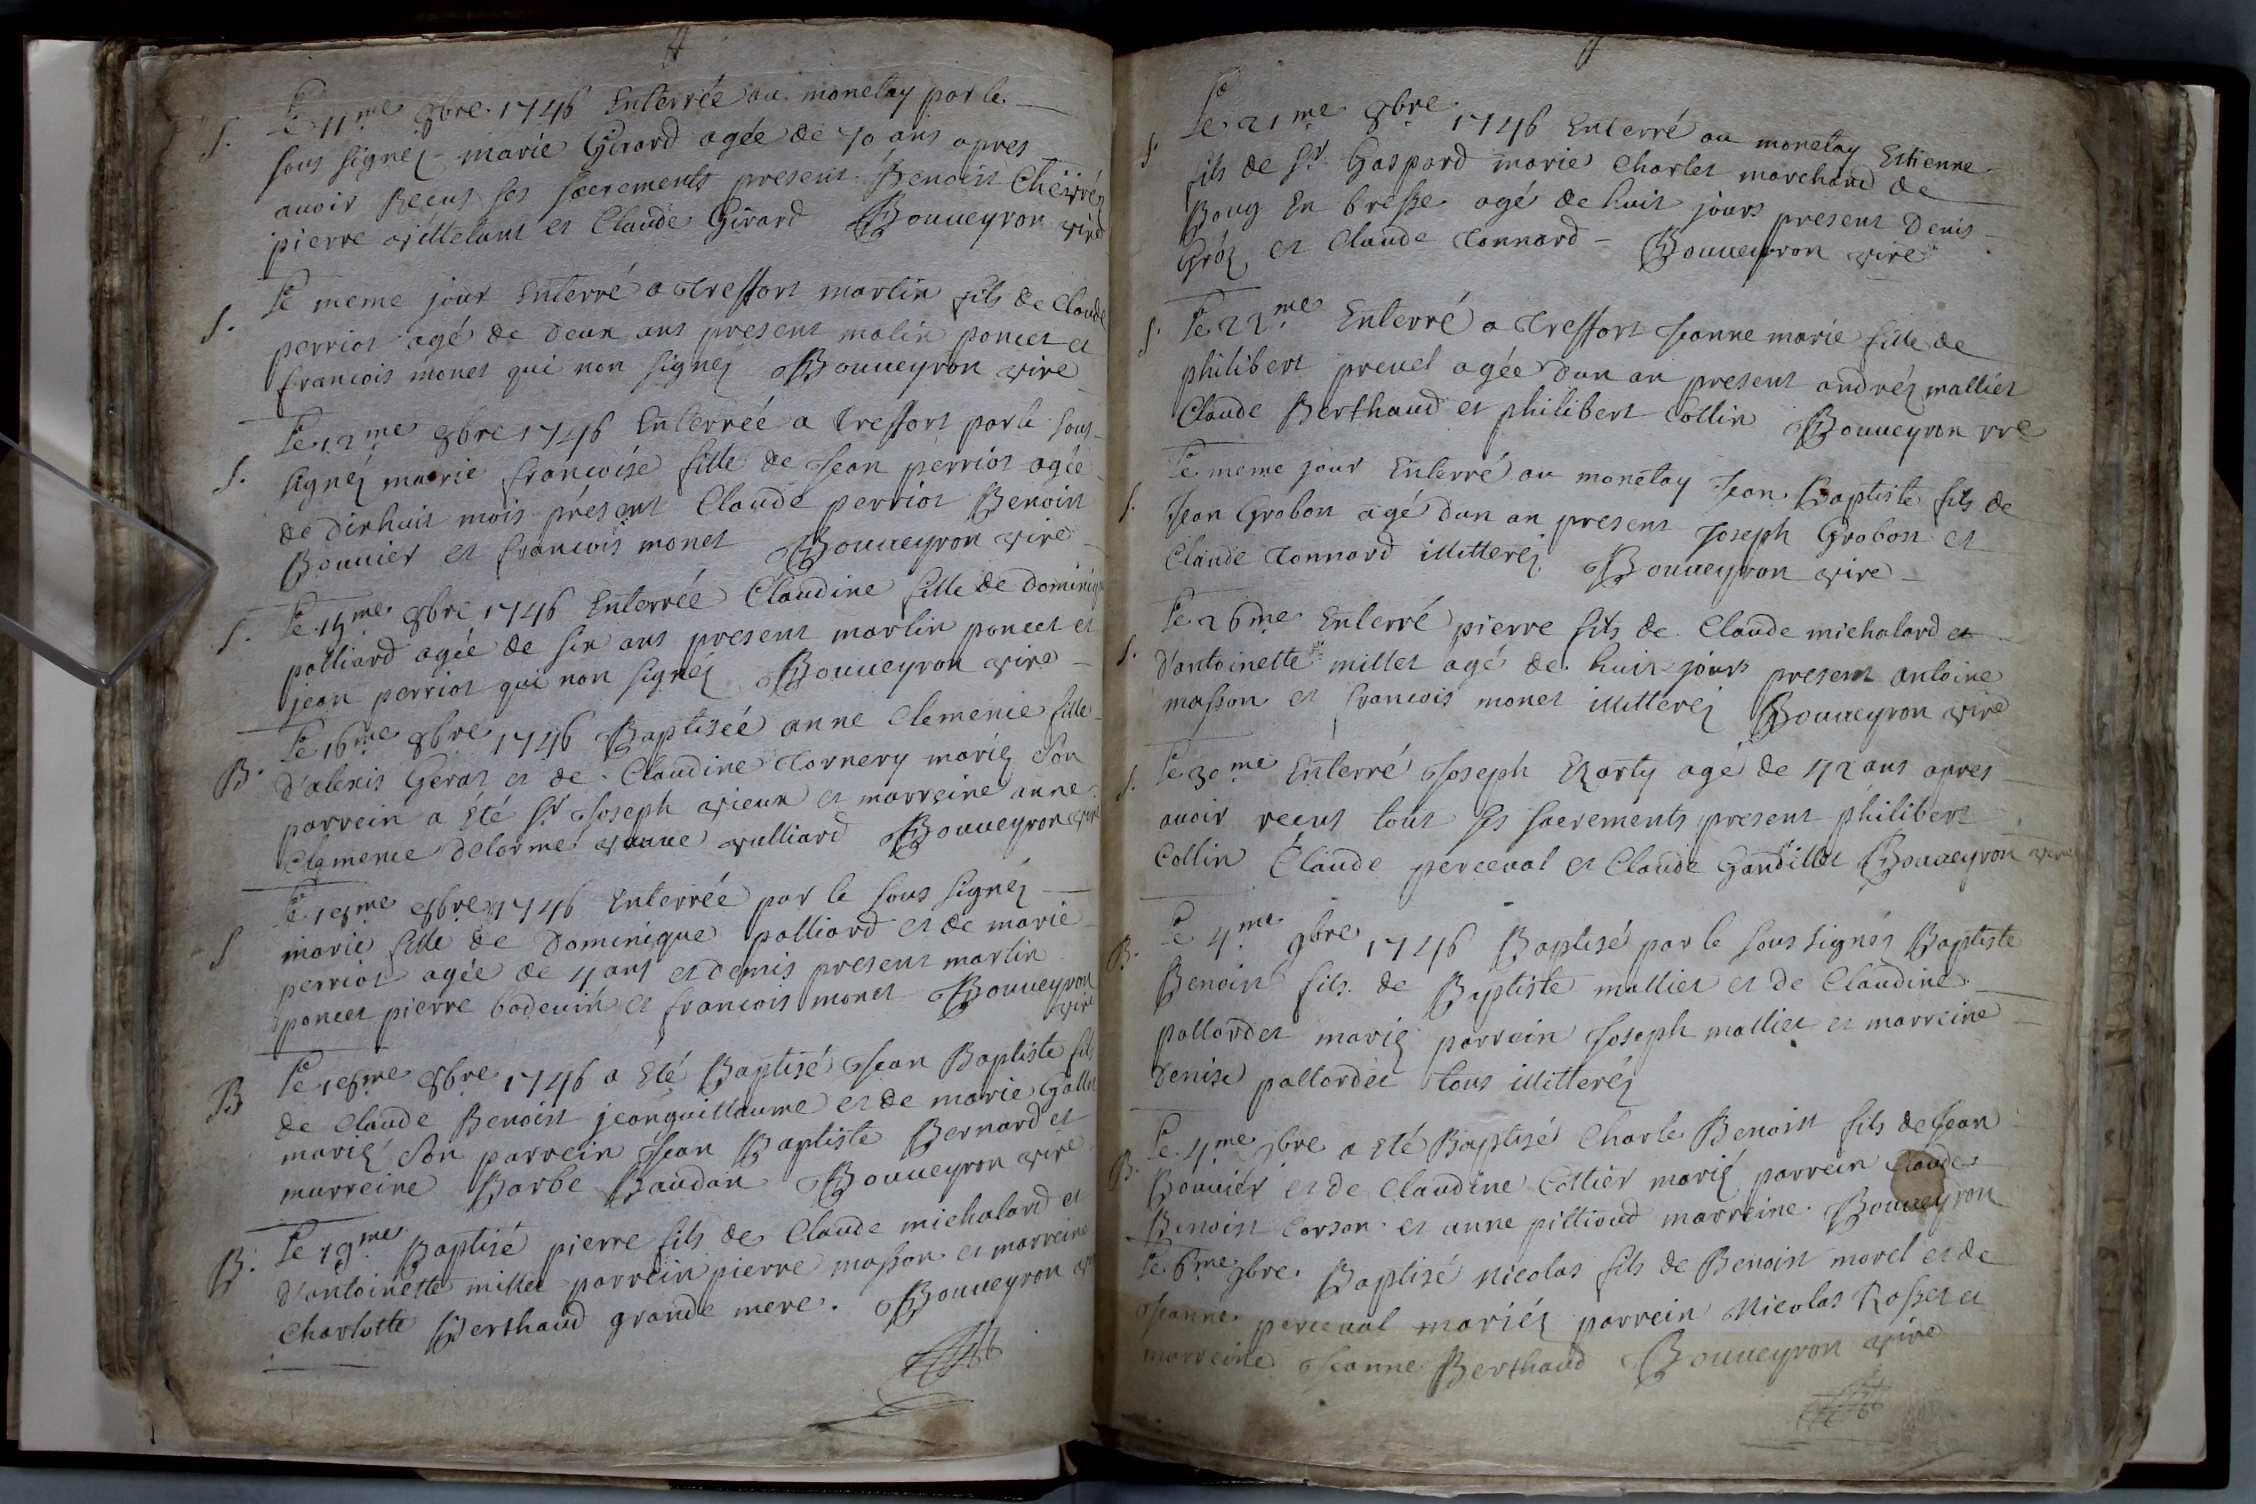 S. Le 11me 8bre 1746 Enterrée au monetay par le
sous signéz marie Girard agée de 70 ans apres
auoir Receus ses sacrements present Benoist Cheiuréz
pierre vittelant et Claude Girard Bouueyron vire
S. Le meme jour Enterré a Treffort martin fils de Claude
perriot agé de deux ans present matin poncet et
francois monet qui non signéz Bouueyron vire
S. Le 12me 8bre 1746 Enterrée a treffort par le sous
signéz marie francoise fille de Jean perriot agée
de dixhuit mois présent Claude perriot Benoist
Bouuier et francois monet Bouueyron vire
S. Le 15me 8bre 1746 Enterrée Claudine fille de dominiq
palliard agée de six ans present martin poncet et
jean perriot qui non signéz Bouueyron vire
B. Le 16me 8bre 1746 Baptisée anne Clemence fille
d'alexis Gerat et de Claudine Tornery mariéz son
parrein a Eté Sr Joseph vieux et marreine anne
Clemence delorme vauue vulliard Bouueyron vire
S Le 18me 8bre 1746 Enterrée par le sous signéz
marie fille de Dominique palliard et de marie
perriot agée de 4 ans et demis present martin
poncet pierre boderin et francois monet Bouueyron
vire
B Le 18me 8bre 1746 a Eté Baptisé Jean Baptiste fils
de Claude Benoist jeanguillaume et de marie Gallet
mariéz son parrein Jean Baptiste Bernard et
marreine Barbe Baudan Bouueyron vire
B. Le 19me Baptisé pierre fils de Claude michalard et
d'antoinette millet parrein pierre masson et marreine
Charlotte Berthaud grande mere. Bouueyron vire
S. Le 21me 8bre 1746 Enterré au monetay Estienne
fils de Sr Gaspard marie Charlet marchand de
Boug En bresse agé de huit jours present Denis
Gróz et Claude Tonnard Bouueyron vire
S. Le 22me Enterré a Treffort Jeanne marie fille de
philibert preuel agée dun an present andréz malliet
Claude Berthaud et philibert Collin Bouueyron vre
S. Le meme jour Enterré au monetay Jean Baptiste fils de
Jean Grobon agé dun an present Joseph Grobon et
Claude Tonnard illitteréz Bouueyron vire
S. Le 26me Enterré pierre fils de Claude michalard et
d'antoinette millet agé de huit jours present antoine
masson et francois monet illitteréz Bouueyron vire
S. Le 30me Enterré Joseph agé de 42 ans apres
auoir receus tout ses sacréments present philibert
Collin Claude perceual et Claude Gandillet Bouueyron vire
B. Le 4me 9bre 1746 Baptisé par le sous signés Baptiste
Benoist fils de Baptiste malliet et de Claudine
pallordet mariéz parrein Joseph malliet et marreine
Denise pallordet tous illitteréz
B. Le 4me 9bre a Eté Baptisé Charle Benoist fils de Jean
Bouuier et de Claudine Collier mariéz parrein Claude
Benoist Corson et anne pillioud marreine. Bouueyron
Le 6me 9bre Baptisé nicolas fils de Benoist morel et de
Jeanne perceual mariéz parrein Nicolas Rosset et
marreine Jeanne Berthaud Bouueyron vire